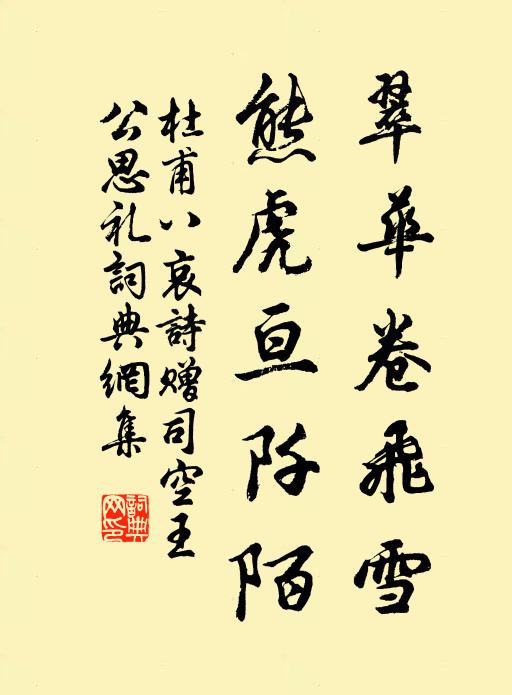 翠華卷飛雪
熊虎亘阡陌
杜甫八哀詩赠司空王
公思礼詞典網集
詞典
网印